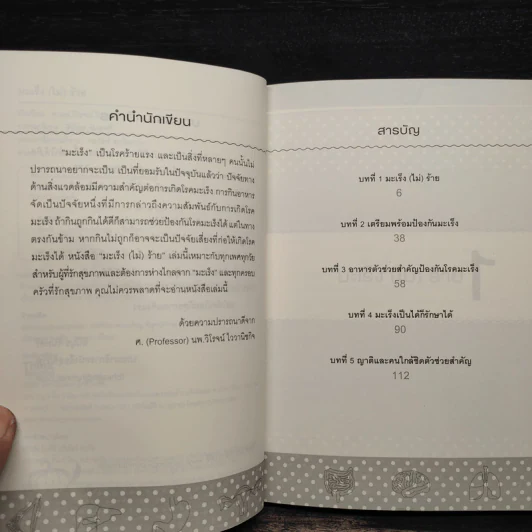 คำนำนักเขียน
"มะเร็ง" เป็นโรคร้ายแรง และเป็นสิ่งที่หลายๆ คนนั้นไม่
ปรารถนาอยากจะเป็น เป็นที่ยอมรับในปัจจุบันแล้วว่า ปัจจัยทาง
ด้านสิ่งแวดล้อมมีความสำคัญต่อการเกิดโรคมะเร็ง การกินอาหาร
จัดเป็นปัจจัยหนึ่งที่มีการกล่าวถึงความสัมพันธ์กับการเกิดโรค
มะเร็ง ถ้ากินถูกกินได้ดีก็สามารถช่วยป้องกันโรคมะเร็งได้ แต่ในทาง
ตรงกันข้าม หากกินไม่ถูกก็อาจจะเป็นปัจจัยเสี่ยงที่ก่อให้เกิดโรค
มะเร็งได้ หนังสือ "มะเร็ง (ไม่) ร้าย" เล่มนี้เหมาะกับทุกเพศทุกวัย
สำหรับผู้ที่รักสุขภาพและต้องการห่างไกลจาก "มะเร็ง" และทุกครอบ
ครัวที่รักสุขภาพ คุณไม่ควรพลาดที่จะอ่านหนังสือเล่มนี้
ด้วยความปรารถนาดีจาก
ศ. (Professor) นพ.วิโรจน์ ไววานิชกิจ
สารบัญ
บทที่ 1 มะเร็ง (ไม่) ร้าย
6
บทที่ 2 เตรียมพร้อมป้องกันมะเร็ง
38
บทที่ 3 อาหารตัวช่วยสำคัญป้องกันโรคมะเร็ง
58
บทที่ 4 มะเร็งเป็นได้ก็รักษาได้
90
บทที่ 5 ญาติและคนใกล้ชิดตัวช่วยสำคัญ
112